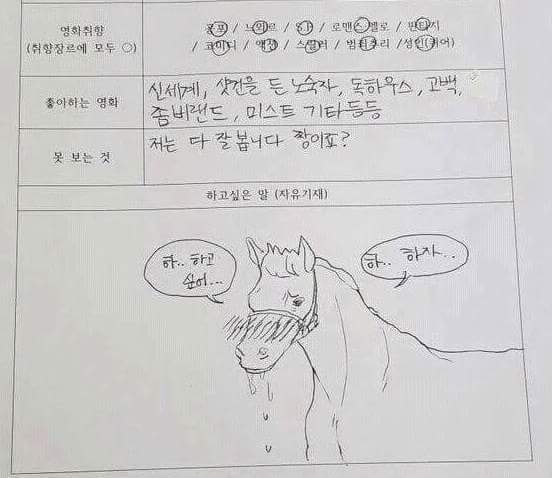 영화취향
(취향장르에 모두 ○)
공포 / 느와르 / SF / 로맨스멜로 / 판타지
/ 코미디 / 액션 / 스릴러 / 범죄추리 /성인(퀴어)
좋아하는 영화
신세계, 샷건을 든 노숙자, 독하우스, 고백,
좀비랜드, 미스트 기타등등
못 보는 것
저는 다 잘 봅니다 짱이죠?
하고싶은 말 (자유기재)
하.. 하고
싶어...
하.. 하자..